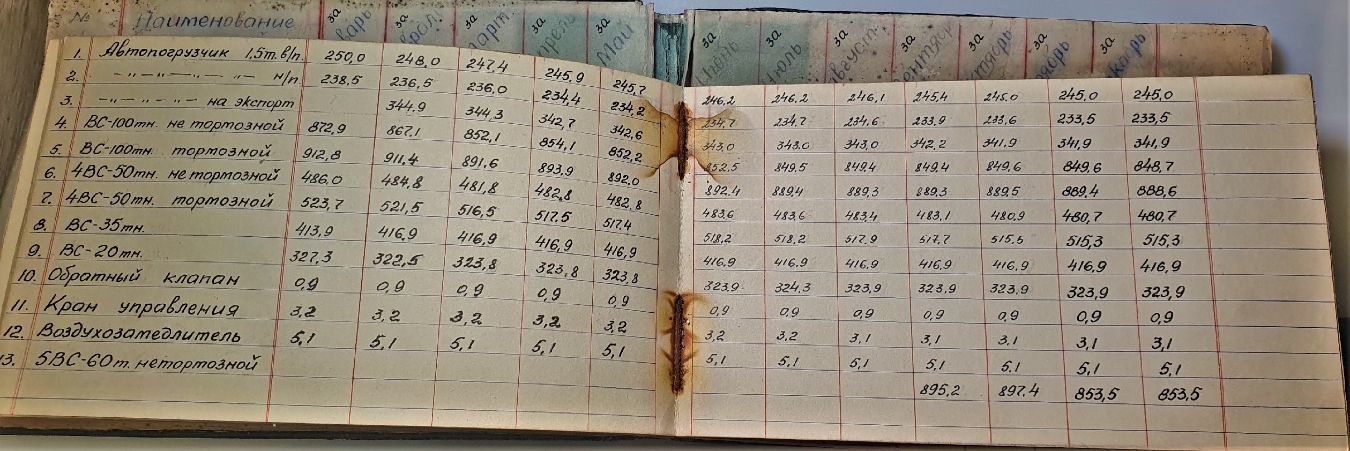 № Наименование за варь за врал. за арт за прель за Май за Июнь за Июль за август за ентябрь за тябрь за оябрь за кабрь
1. Автопогрузчик 1.5т. в/п. 250,0 248,0 247,4 245,9 245,7 246,2 246,2 246,1 245,4 245,0 245,0 245,0
2. —"—"—"—"— н/п 238,5 236,5 236,0 234,4 234,2 234,7 234,7 234,6 233,9 233,6 233,5 233,5
3. —"—"—"— на экспорт 344,9 344,3 342,7 342,6 343,0 343,0 343,0 342,2 341,9 341,9 341,9
4. ВС-100тн. не тормозной 872,9 867,1 852,1 854,1 852,2 852,5 849,5 849,4 849,4 849,6 849,6 848,7
5. ВС-100тн. тормозной 912,8 911,4 891,6 893,9 892,0 892,4 889,4 889,3 889,3 889,5 889,4 888,6
6. 4ВС-50тн. не тормозной 486,0 484,8 481,8 482,8 482,8 483,6 483,6 483,4 483,1 480,9 480,7 480,7
7. 4ВС-50тн. тормозной 523,7 521,5 516,5 517,5 517,4 518,2 518,2 517,9 517,7 515,5 515,3 515,3
8. ВС-35тн. 413,9 416,9 416,9 416,9 416,9 416,9 416,9 416,9 416,9 416,9 416,9 416,9
9. ВС-20тн. 327,3 322,5 323,8 323,8 323,8 323,9 324,3 323,9 323,9 323,9 323,9 323,9
10. Обратный клапан 0,9 0,9 0,9 0,9 0,9 0,9 0,9 0,9 0,9 0,9 0,9 0,9
11. Кран управления 3,2 3,2 3,2 3,2 3,2 3,2 3,2 3,1 3,1 3,1 3,1 3,1
12. Воздухозамедлитель 5,1 5,1 5,1 5,1 5,1 5,1 5,1 5,1 5,1 5,1 5,1 5,1
13. 5ВС-60т. нетормозной 895,2 897,4 853,5 853,5